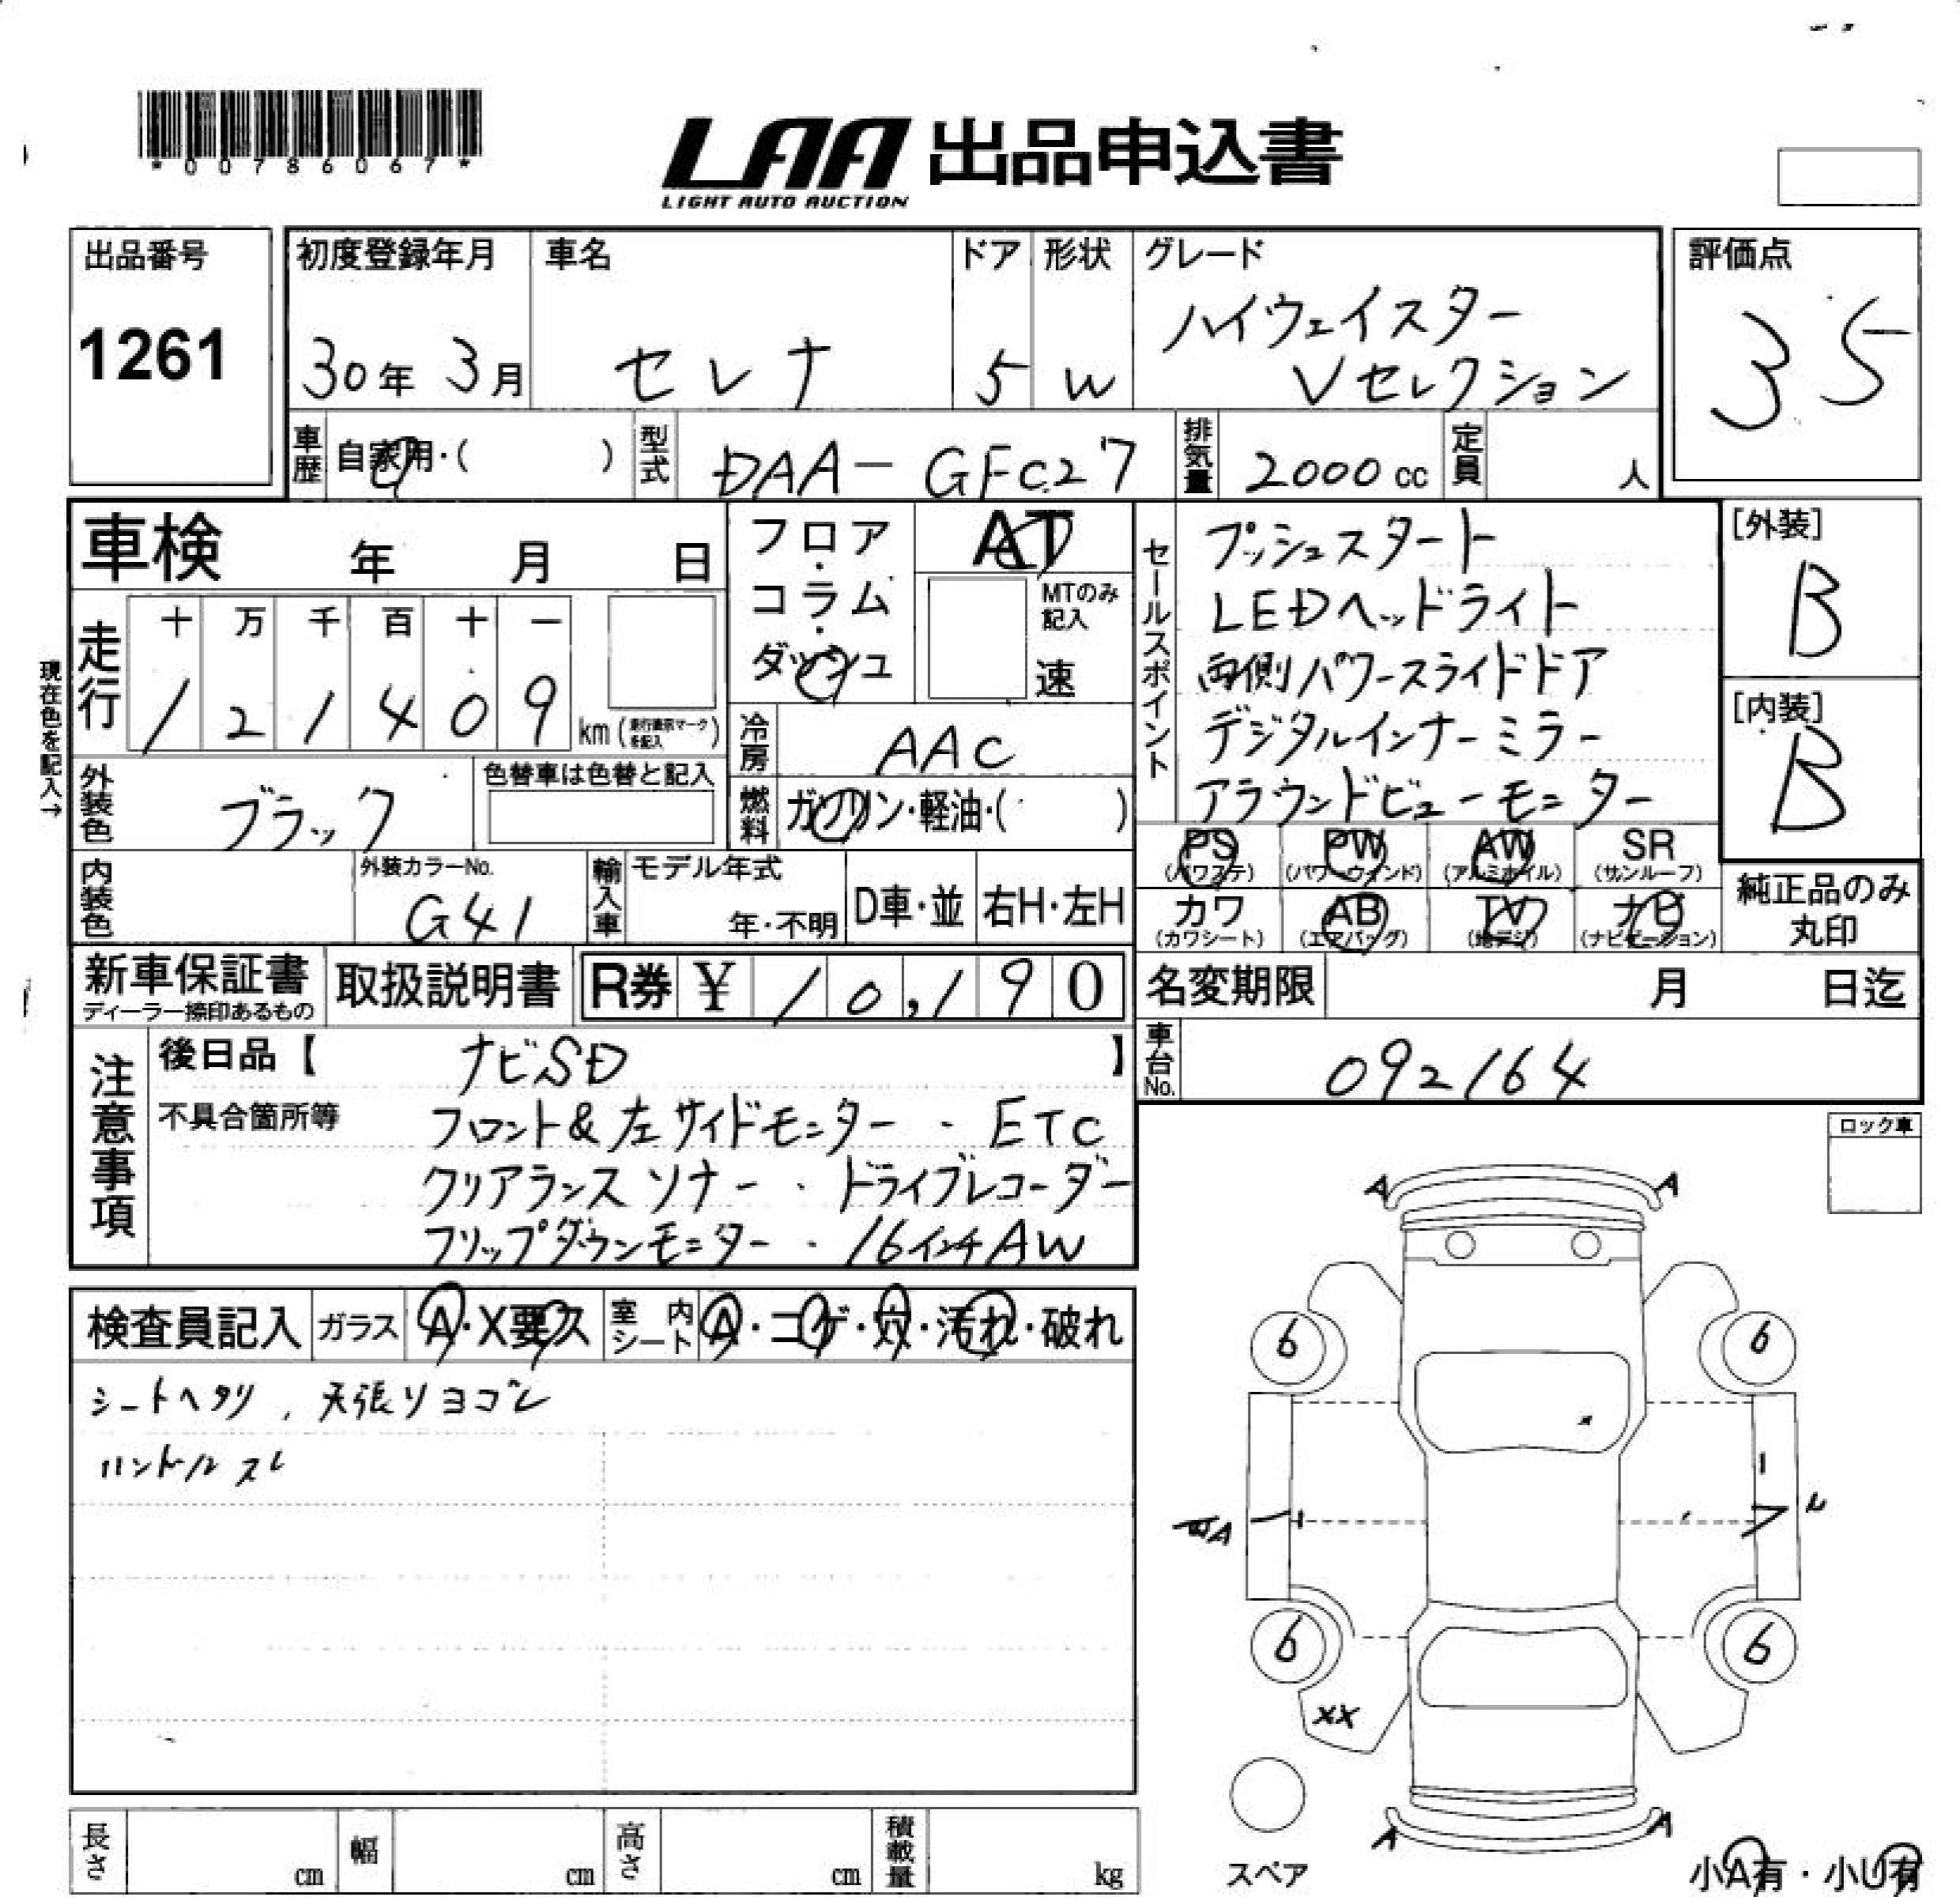 *00786067*
LAA 出品申込書
LIGHT AUTO AUCTION
出品番号
1261
初度登録年月
30年 3月
車名
セレナ
ドア
5
形状
W
グレード
ハイウェイスター
Vセレクション
評価点
35
車歴 自家用・( )
型式 DAA-GFC27
排気量 2000cc
定員 人
車検 年 月 日
フロア・コラム・ダッシュ
AT
MTのみ記入
速
セールスポイント
プッシュスタート
LEDヘッドライト
両側パワースライドドア
デジタルインナーミラー
アラウンドビューモニター
[外装]
B
[内装]
B
現在色を記入→
走行
十 万 千 百 十 一
1 2 1 4 0 9 km (走行車表示マークを記入)
冷房 AAC
外装色 ブラック
色替車は色替と記入
燃料 ガソリン・軽油・( )
PS (パワステ)
PW (パワーウィンド)
AW (アルミホイル)
SR (サンルーフ)
カワ (カワシート)
AB (エアバッグ)
TV (地デジ)
ナビ (ナビゲーション)
純正品のみ
丸印
内装色
外装カラーNo.
G41
輸入車
モデル年式
年・不明
D車・並
右H・左H
新車保証書
ディーラー捺印あるもの
取扱説明書
R券 ¥ 10,190
名変期限 月 日迄
車台No. 092164
注意事項
後日品【 ナビSD 】
不具合箇所等
フロント&左サイドモニター・ETC
クリアランスソナー・ドライブレコーダー
フリップダウンモニター・16インチAW
ロック車
検査員記入
ガラス A・X要ス
室内シート A・コゲ・穴・汚れ・破れ
シートヘタリ, 天張リヨゴレ
ハンドルスレ
A A
6 6
A
6 6
XX
A A
スペア
小A有・小U有
長さ cm
幅 cm
高さ cm
積載量 kg